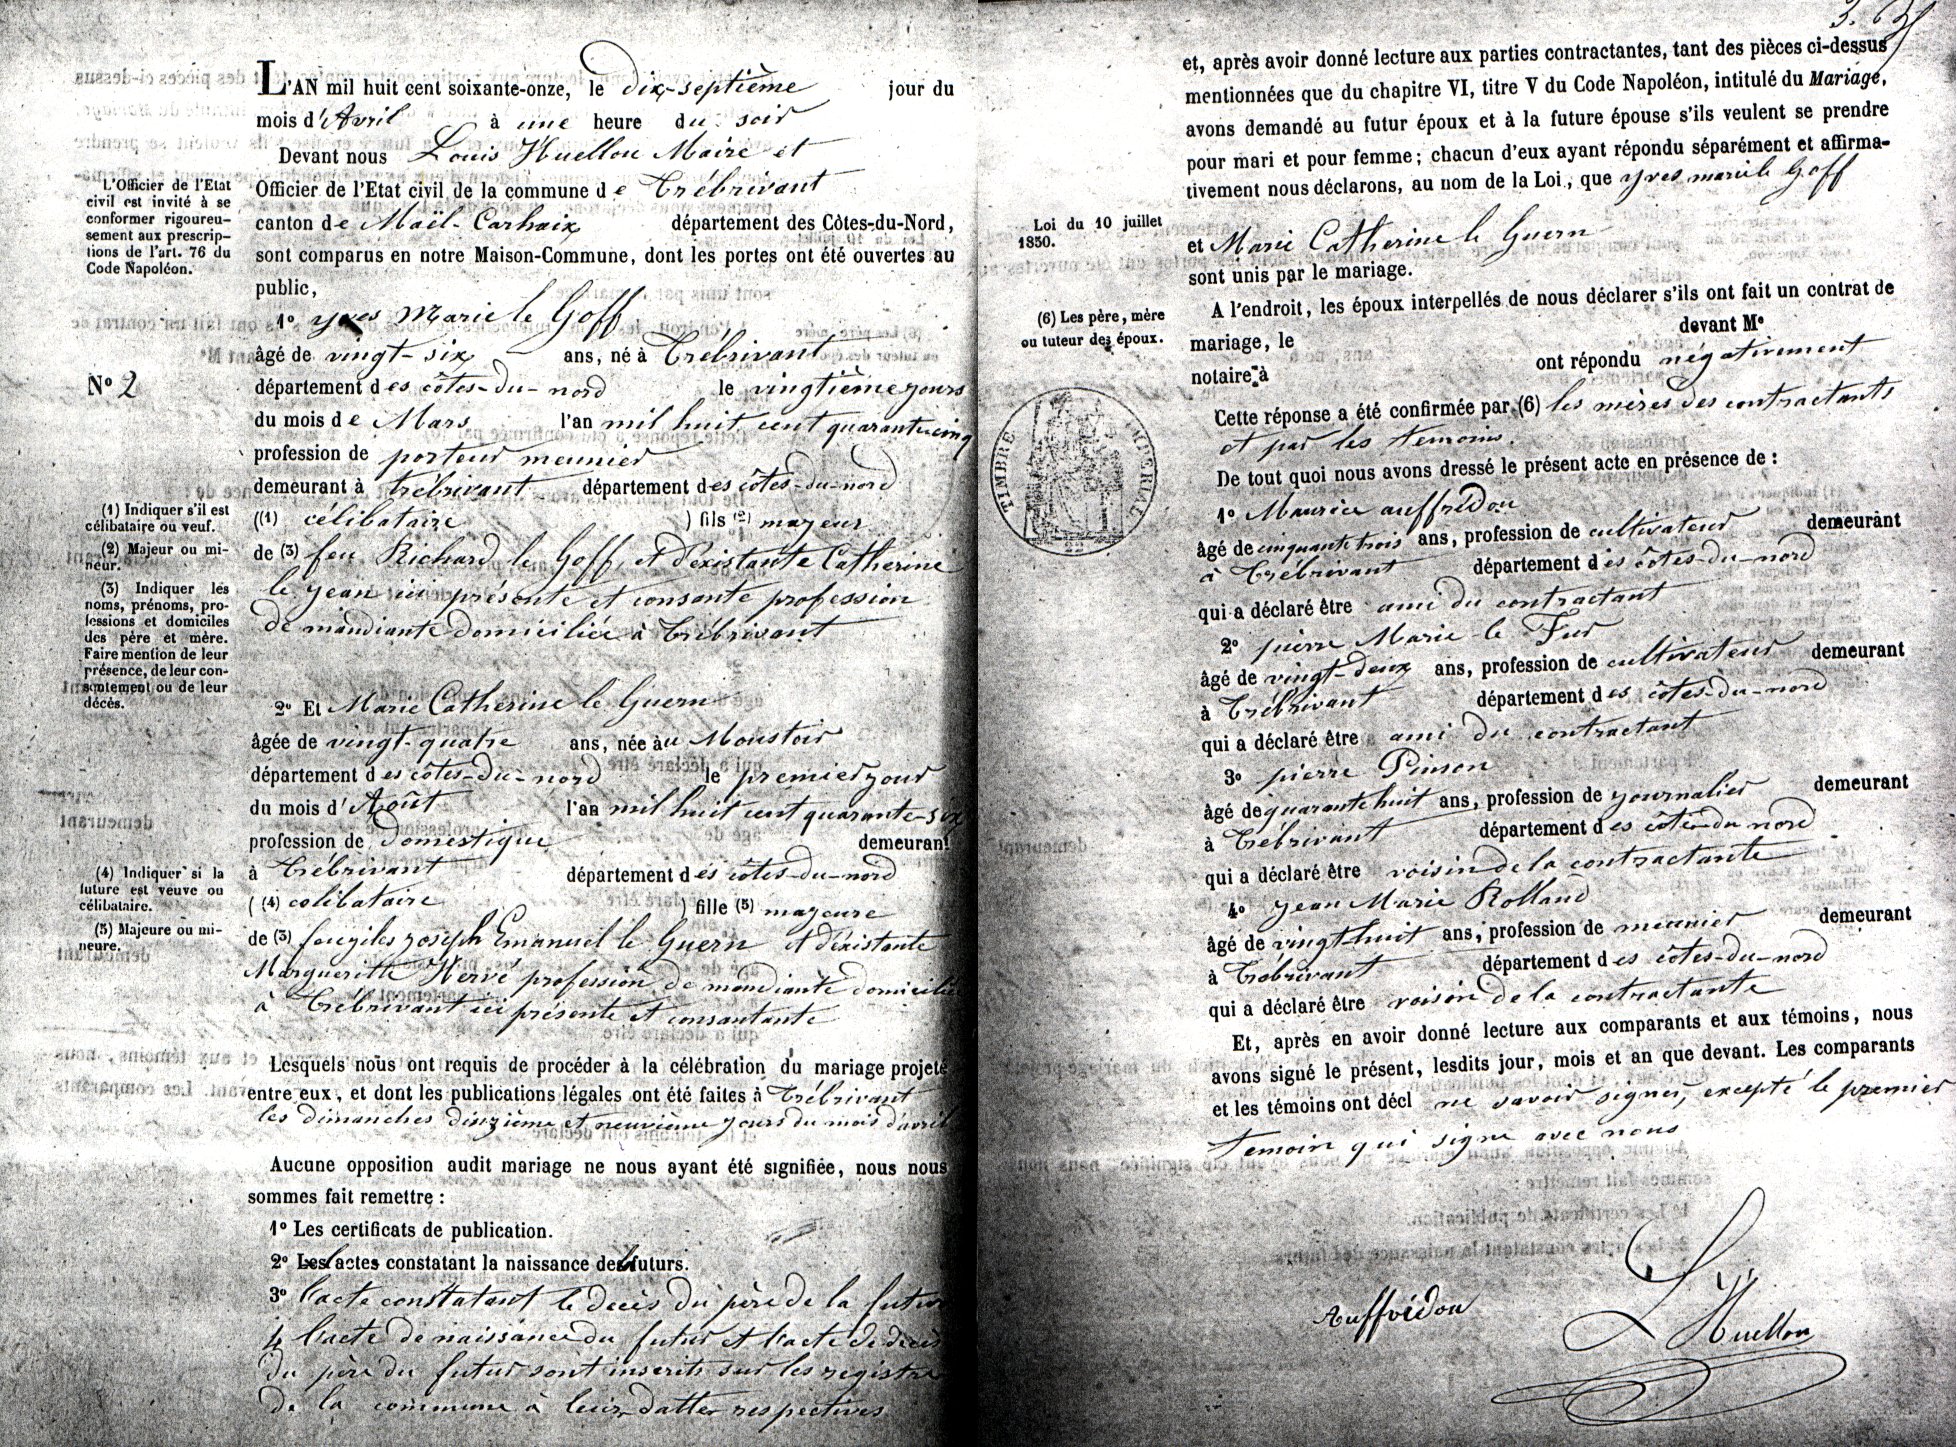 L'AN mil huit cent soixante-onze, le dix-septième jour du
mois d'Avril à une heure du soir
Devant nous Louis Huellou Maire et
Officier de l'Etat civil de la commune de Trébrivant
canton de Maël-Carhaix département des Côtes-du-Nord,
sont comparus en notre Maison-Commune, dont les portes ont été ouvertes au
public,
1º yves Marie le Goff
âgé de vingt-six ans, né à Trebrivant
département des côtes-du-nord le vingtième jours
du mois de Mars l'an mil huit cent quarante cinq
profession de porteur meunier
demeurant à trébrivant département des côtes-du-nord
((1) célibataire ) fils (2) mayeur
de (3) feu Richard le Goff, et d'existante Catherine
le yean ici présente et consante profession
de mandiante domiciliée à Trébrivant
2º Et Marie Catherine le Guern
âgée de vingt-quatre ans, née au Moustoir
département des côtes-du-nord le premier jour
du mois d'Août l'an mil huit cent quarante-six
profession de Domestique demeurant
à Trébrivant département des côtes-du-nord
((4) celibataire ) fille (5) mayeure
de (3) feu gilles joseph Emanuel le Guern et d'éxistante
Margueritte Hervé profession de mandiante domicilié
à Trébrivant ici présente et consantante
Lesquels nous ont requis de procéder à la célébration du mariage projeté
entre eux, et dont les publications légales ont été faites à Trébrivant
les dimanches deuzième et neuvième jours du mois d'avril
Aucune opposition audit mariage ne nous ayant été signifiée, nous nous
sommes fait remettre :
1º Les certificats de publication.
2º Les actes constatant la naissance des futurs.
3º l'acte constatant le decès du père de la future
4 l'acte de naissance du futur et l'acte de décès
du père du futur sont inscrits sur les registre
de la commune à leur datter respectives
L'Officier de l'Etat
civil est invité à se
conformer rigoureu-
sement aux prescrip-
tions de l'art. 76 du
Code Napoléon.
Nº 2
(1) Indiquer s'il est
célibataire ou veuf.
(2) Majeur ou mi-
neur.
(3) Indiquer les
noms, prénoms, pro-
fessions et domiciles
des père et mère.
Faire mention de leur
présence, de leur con-
sentement ou de leur
décès.
(4) Indiquer si la
future est veuve ou
célibataire.
(5) Majeure ou mi-
neure.
et, après avoir donné lecture aux parties contractantes, tant des pièces ci-dessus
mentionnées que du chapitre VI, titre V du Code Napoléon, intitulé du Mariage,
avons demandé au futur époux et à la future épouse s'ils veulent se prendre
pour mari et pour femme; chacun d'eux ayant répondu séparément et affirma-
tivement nous déclarons, au nom de la Loi, que yves marie le Goff
et Marie Catherine le Guern
sont unis par le mariage.
A l'endroit, les époux interpellés de nous déclarer s'ils ont fait un contrat de
mariage, le devant Me
notaire à ont répondu négativement
Cette réponse a été confirmée par (6) les mères des contractants
et par les temoins.
De tout quoi nous avons dressé le présent acte en présence de :
1º Maurice auffrédou
âgé de cinquante trois ans, profession de cultivateur demeurant
à Trébrivant département des côtes-du-nord
qui a déclaré être ami du contractant
2º pierre Marie le Fur
âgé de vingt-deux ans, profession de cultivateur demeurant
à Trébrivant département des côtes-du-nord
qui a déclaré être ami du contractant
3º pierre Pinson
âgé de quarante huit ans, profession de journalier demeurant
à Trébrivant département des côtes du nord
qui a déclaré être voisin de la contractante
4º yean Marie Rolland
âgé de vingt-huit ans, profession de meunier demeurant
à Trébrivant département des côtes-du-nord
qui a déclaré être voisin de la contractante
Et, après en avoir donné lecture aux comparants et aux témoins, nous
avons signé le présent, lesdits jour, mois et an que devant. Les comparants
et les témoins ont décl ne savoir signer, excepté le premier
temoin qui signe avec nous
Auffrédou
L Huellou
Loi du 10 juillet
1850.
(6) Les père, mère
ou tuteur des époux.
TIMBRE IMPERIAL